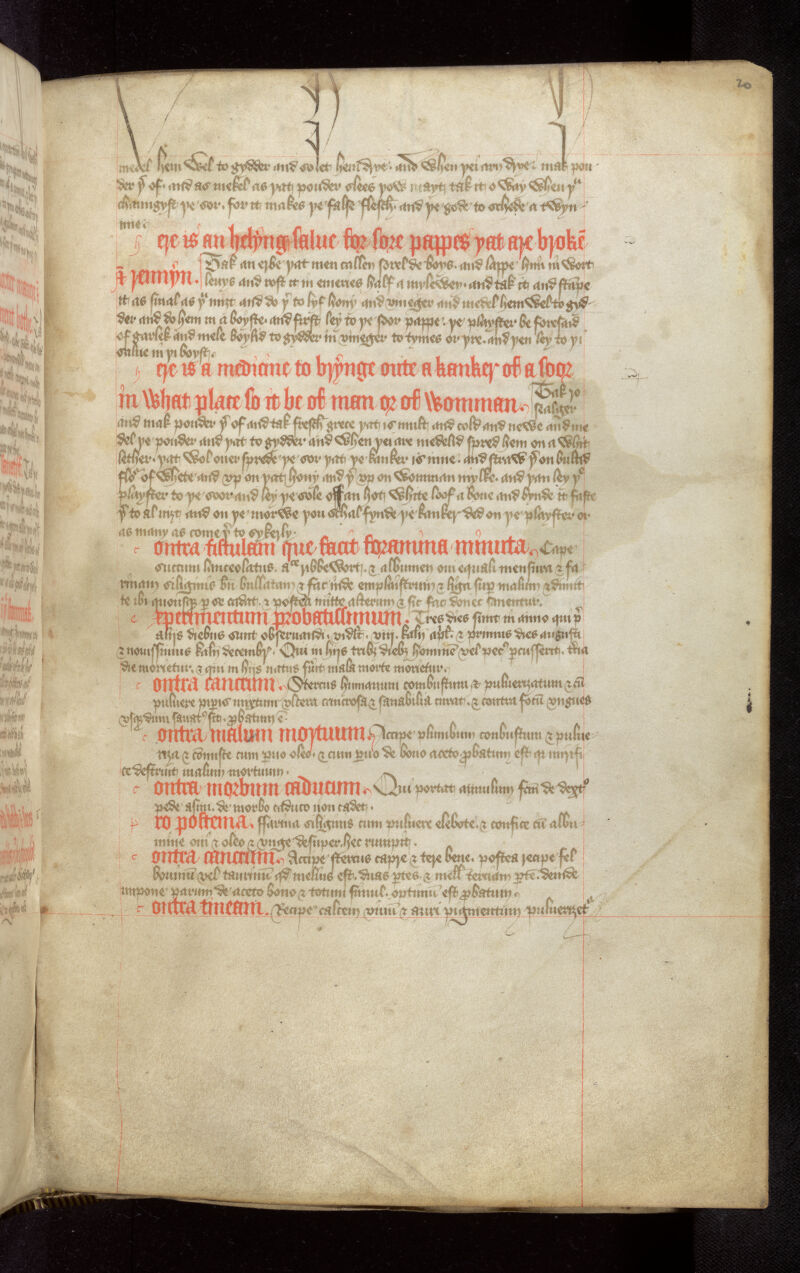 20
medel hem wel to gydder and so let hem drye. and when yei arn drye. mak pou
der yr of. and as mekel as yat pouder slees yow mayt tak it o way when yu
chaungyst ye sor. for it makes ye false flesch. and ye gode to schede a twyn
ne.
ere is an helyng salue for sore pappes yat are broke
& rennyn. Tak an erbe yat men callen sorel de boys. and lappe hym in wort
leuys and rost it in emeries half a myle wey. and tak it and stape
it as smal as yu mizt and do yr to lyf hony and vineger and medel hem wel to gyd
der and do hem in a boyste. and first ley to ye soor pappe. ye playster be forsaid
of garlek and mele boylid to gydder in vineger to tymes or yre. and yen ley to yi
salue in yi boyst.
ere is a medicine to brynge oute a kanker of a soor
in what place so it be of man or of womman. Tak
and mak pouder yr of and tak fresch grece yat is mult and cold and newe and me
del ye pouder and yat to gydder and when yei are medelid spred hem on a whit
lether. yat wol ouer sprede ye sor yat ye kanker is inne. and straw yr on bultid
flor of whete and vp on yat hony and yr vp on womman mylke. and yan ley yis
playster to ye soor and ley ye sole of an hot white loof a boue and bynde it faste
yr to al nizt and on ye morwe you schal fynde ye kanker ded on ye playster or
as many as come yr to sykerly.
ontra fistulam que facit foramina minuta. Cape
succum lanceolatus. ribbewort. & albumen oui equali mensura & fa
rinam siliginis bn bullatam & fac inde emplaustrum & liga sup malum & dimit
te ibi quousq p se cadat. & postea mitte alterum & sic fac donec sanentur.
xperimentum probatissimum. Tres dies sunt in anno qui p
alijs diebus sunt obseruandi. vidlt. viij. kaln apl. & primus dies augusti
& nouissimus kaln decembr. Qui in hijs tribz diebz hominem vel pec percusserit. tria
die morietur. & qui in hijs natus fuit mala morte morietur.
ontra cancrum. Stercus humanum combustum & puluerizatum & cu
puluere pipis mixtum vlcera cancrosa & sanabilia curat. & contra
vsqdum sanat sit. pbatum e.
ontra malum mortuum. Accipe plumbum conbustum & pulue
riza & comisce cum puo oleo. & cum puo de bono aceto. pbatum est qr mirifi
ce destruit malum mortuum.
ontra morbum caducum. Qui portat annulum fcm de dextro
pede asini. de morbo caduco non cadet.
ro postema. ffarina siliginis cum puluere elebore. & confice cu albu
mine oui & oleo & vnge desuper. hec rumpit.
ontra cancrum. Accipe stercus capre & tere bene. postea recipe fel
bouinu vel taurinu qd melius est. duas ptes. & mell terciam pte. deinde
impone parum de aceto bono & totum simul. optimu est pbatum.
ontra tineam. Recipe calcem viuu & auri pigmentum puluerizet